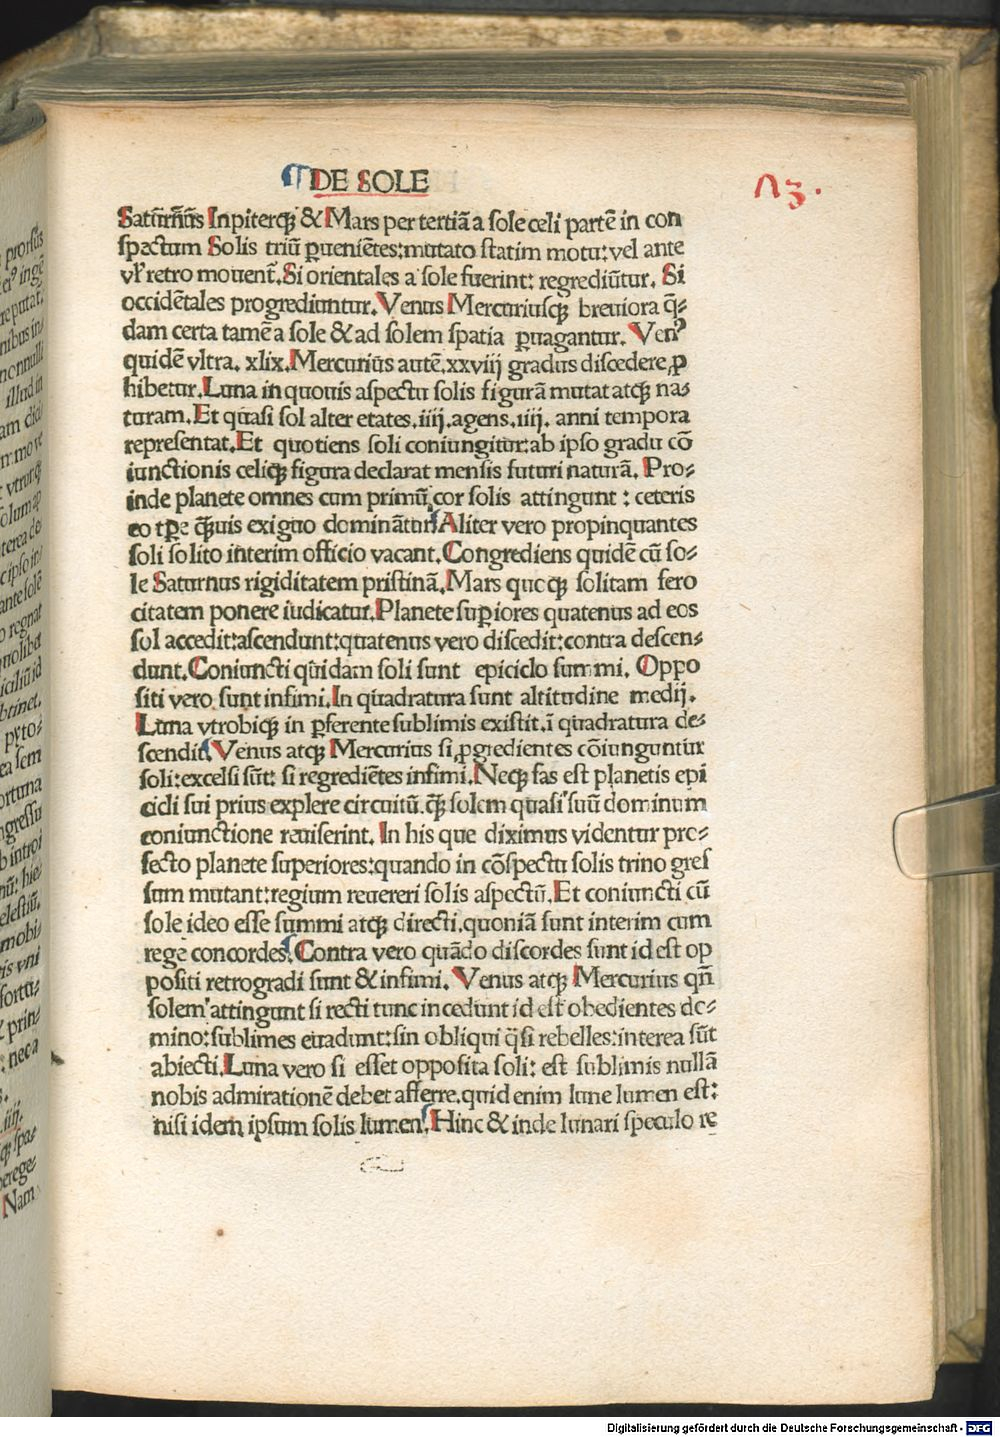 ¶DE SOLE
Saturnūs Inpiterqꝫ & Mars per tertiā a sole celi partē in con
spectum Solis triū ꝑueniētes:mutato statim motu:vel ante
vl retro mouent̄.Si orientales a sole fuerint: regrediūtur. Si
occidētales progrediuntur.Venus Mercuriusqꝫ breuiora q̄⸗
dam certa tamē a sole & ad solem spatia ꝑuagantur. Venꝰ
quidē vltra. xlix.Mercuriūs autē.xxviij gradus discedere ꝓ
hibetur.Luna in quouis aspectu solis figurā mutat atqꝫ na⸗
turam.Et quasi sol alter etates.iiij.agens.iiij. anni tempora
representat.Et quotiens soli coniungitur:ab ipso gradu cō
iunctionis celiqꝫ figura declarat mensis futuri naturā. Pro⸗
inde planete omnes cum primū cor solis attingunt : ceteris
eo tꝑe qꝫuis exiguo dominātur Aliter vero propinquantes
soli solito interim officio vacant.Congrediens quidē cū so⸗
le Saturnus rigiditatem pristinā.Mars quoqꝫ solitam fero
citatem ponere iudicatur.Planete suꝑiores quatenus ad eos
sol accedit:ascendunt:quatenus vero discedit:contra descen⸗
dunt.Coniuncti quidam soli sunt epiciclo summi. Oppo
siti vero sunt infimi.In quadratura sunt altitudine medij.
Luna vtrobiqꝫ in ꝑferente sublimis existit.ī quadratura de⸗
scendit.Venus atqꝫ Mercurius si ꝓgredientes cōiunguntur
soli:excelsi sūt: si regrediētes infimi.Neqꝫ fas est planetis epi
cicli sui prius explere circuitū.qꝫ̄ solem quasi suū dominum
coniunctione reuiserint. In his que diximus videntur pro⸗
fecto planete superiores:quando in cōspectu solis trino gres
sum mutant:regium reuereri solis aspectū.Et coniuncti cū
sole ideo esse summi atqꝫ directi.quoniā sunt interim cum
rege concordes.Contra vero quādo discordes sunt id est op
positi retrogradi sunt & infimi. Venus atqꝫ Mercurius qn̄
solem attingunt si recti tunc incedunt id est obedientes do⸗
mino:sublimes euadunt:sin obliqui q̄si rebelles:interea sūt
abiecti.Luna vero si esset opposita soli: est sublimis nullā
nobis admirationē debet afferre.quid enim lune lumen est:
nisi idem ipsum solis lumen.Hinc & inde lunari speculo re
Digitalisierung gefördert durch die Deutsche Forschungsgemeinschaft - DFG